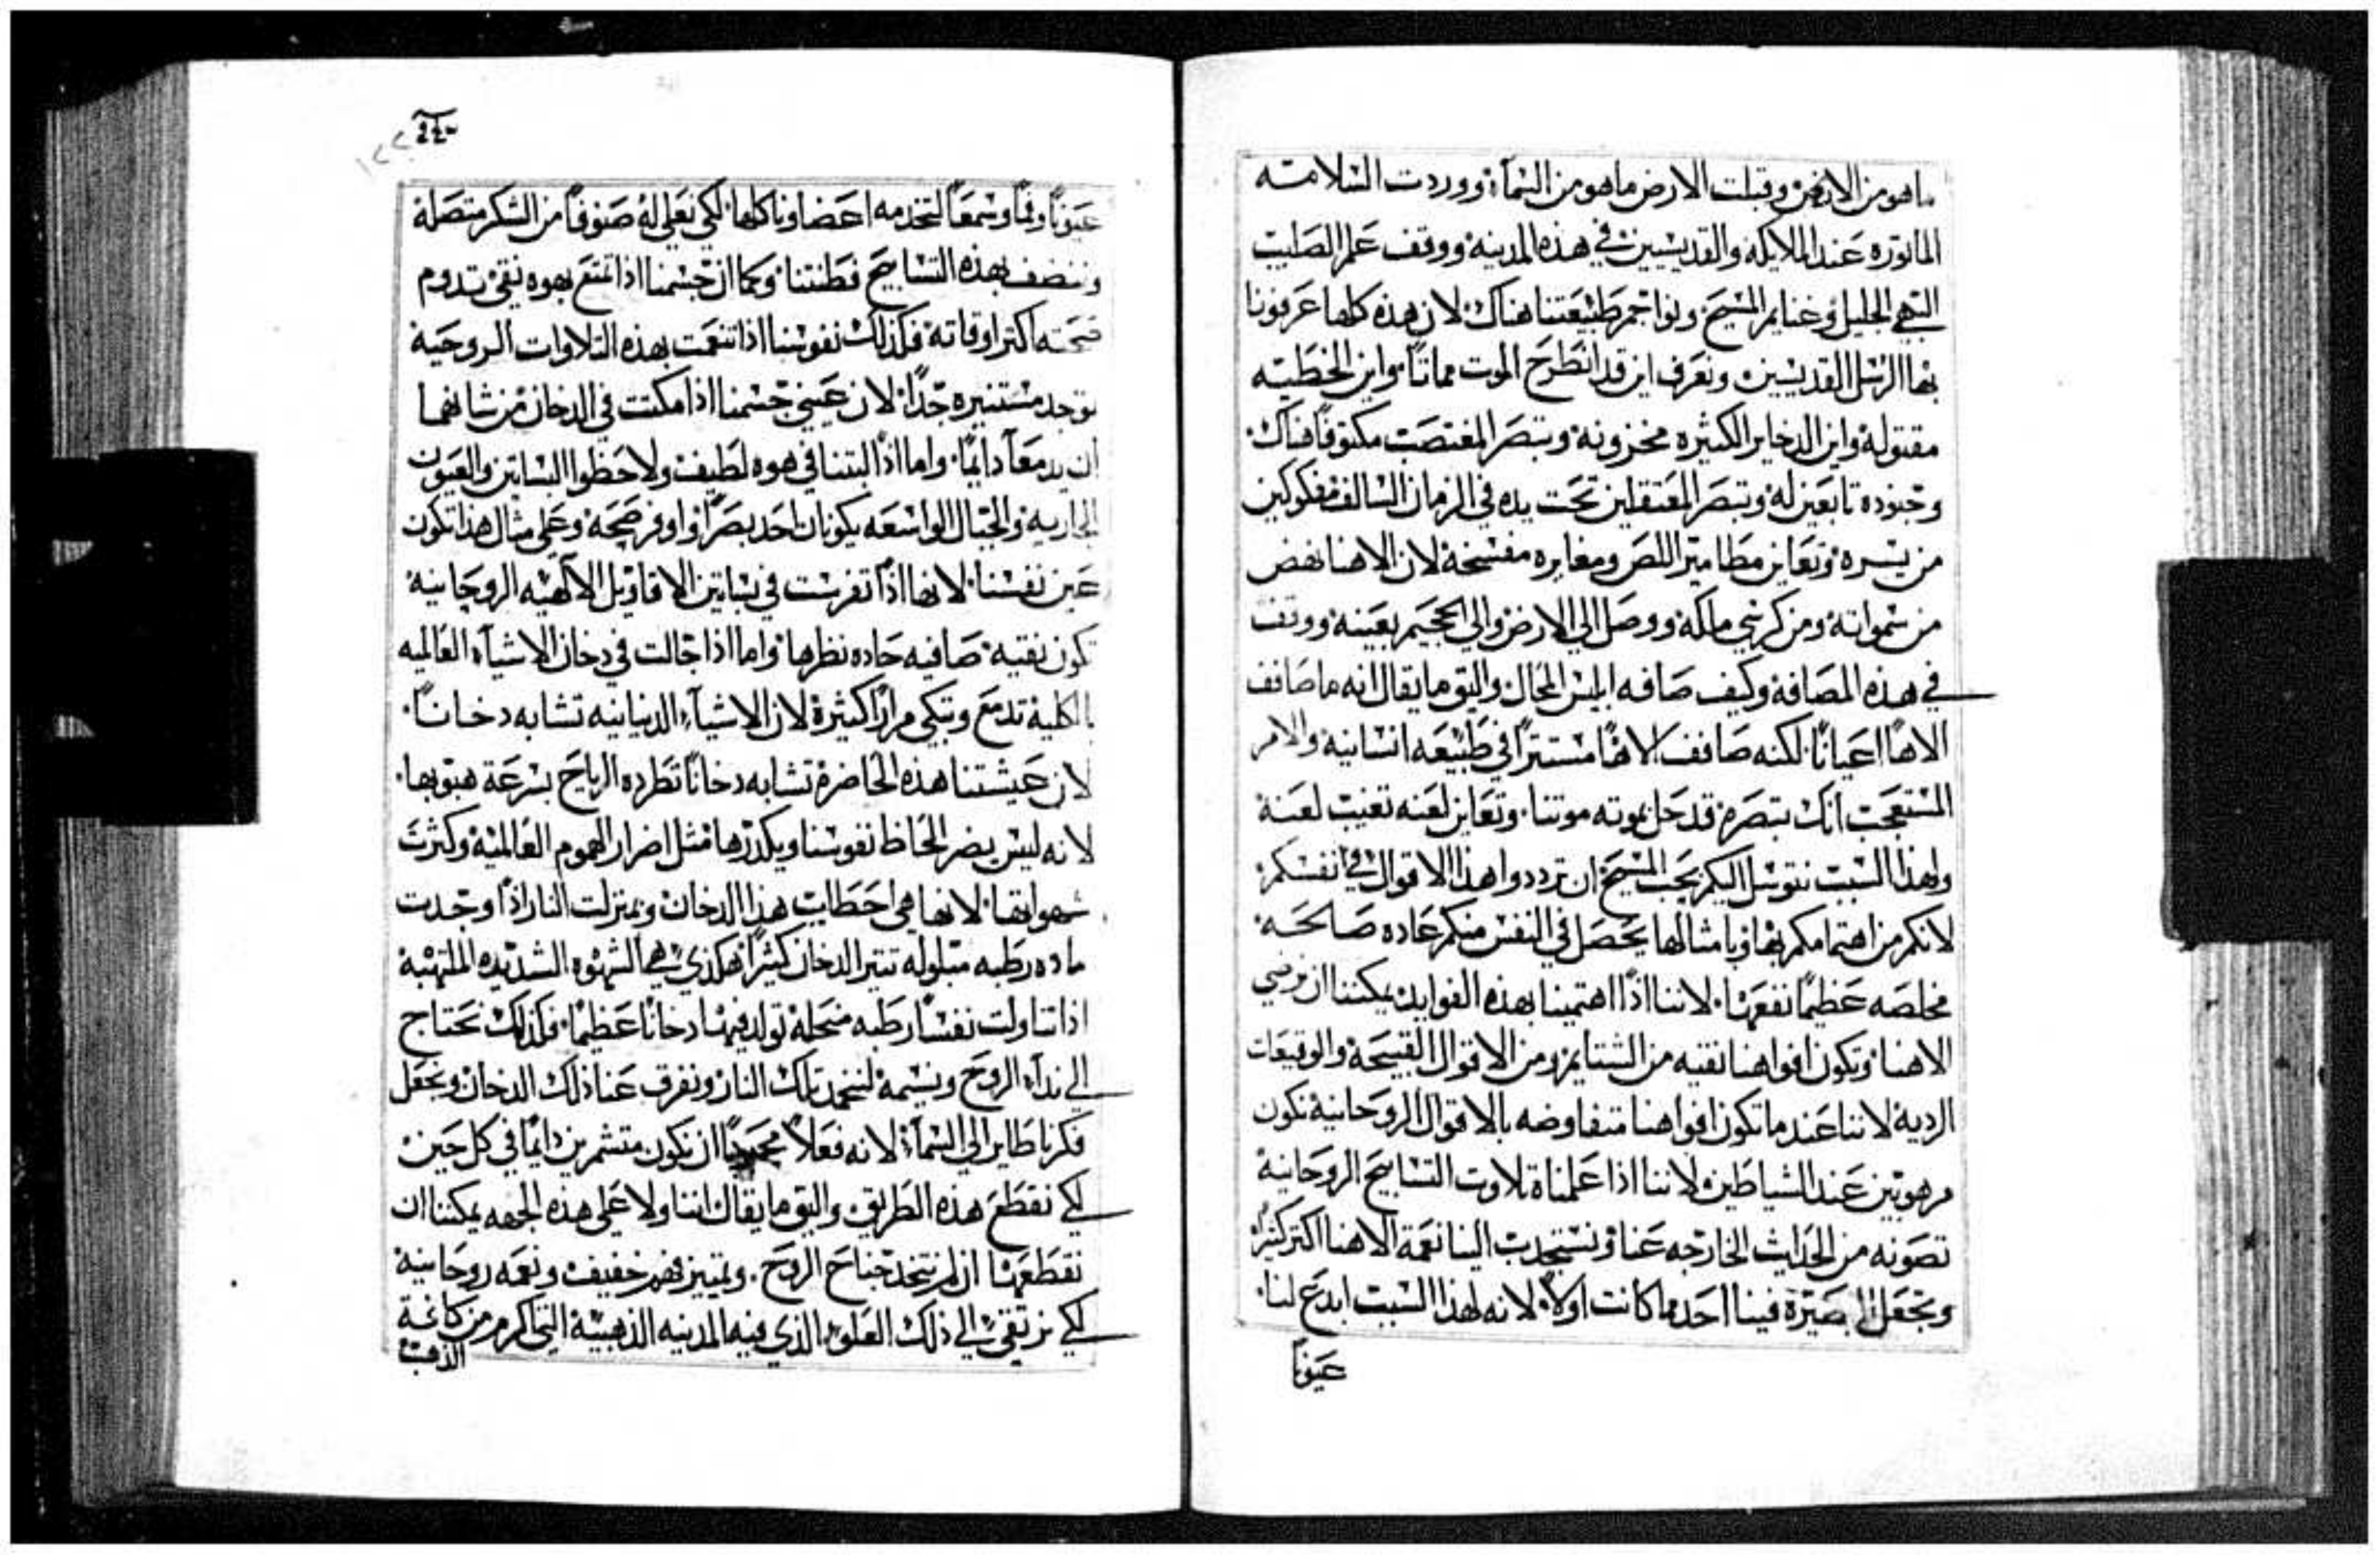 ماهو من الارض وقبلت الارض ماهو من السمآ ووردت السلامه
الماتوره عند الملايكه والقديسين في هذه المدينه ووقف علم الصليب
البهي الجليل وغنايم المسيح ونواجم طبيعتنا هناك لان هذه كلها عرفونا
بها الرسل القديسين ونعرف اين قد انطرح الموت مماتاً واين الخطيه
مقتوله واين الدخاير الكثيره مخزونه وتبصر المغتصب مكتوفاً هناك
وجنوده تابعين له وتبصر المعتقلين تحت يده في الزمان السالف مفكوكين
من يسره وتعاين مطامير اللص ومغايره مفسخة لان الاهنا نهض
من سمواته ومن كرسي ملكه ووصل الي الارض والي الجحيم بعينه ووقف
في هذه المصافة وكيف صافه ابليس المحال واليق ما يقال انه ما صافف
الاهاً اعياناً لكنه صافف الاهاً مستتراً في طبيعه انسانيه والامر
المستعجب انك تبصره قد حل بموته موتنا وتعاين لعنه تغيب لعنة
ولهذا السبب نتوسل اليكم بحب المسيح ان ترددوا هذا الاقوال في انفسكم
لانكم من اهتمامكم بها وبامثالها يحصل في النفس منكم عاده صالحه
مخلصه عظيماً نفعها لاننا اذا اهتمينا بهذه الفوايد يمكننا ان نرضي
الاهنا وتكون افواهنا نقيه من الشتايم ومن الاقوال القبيحة والوقيعات
الرديه لاننا عند ما تكون افواهنا متفاوضه بالاقوال الروحانيه نكون
مرهوبين عند الشياطين لاننا اذا علمناه تلاوت التسابيح الروحانيه
نصونه من الحدايث الخارجه عنا ونستجدب الينا نعمة الاهنا اكتر كثيراً
وتجعل البصيرة فينا احد مما كانت اولاً لانه لهذا السبب ابدع لنا
عيوناً
عيوناً وفماً وسمعاً لتخدمه احضاونا كلها لكي نعلي له صنوفاً من الشكر متصلة
وننضف بهذه التسابيح فطنتنا وكما ان جسمنا اذا تمتع بهوه نقي تدوم
صحته اكتر اوقاته فكذلك نفوسنا اذا تنعمت بهذه التلاوات الروحية
توجد مستنيره جداً لان عيني جسمنا اذا مكتت في الدخان من شانهما
ان يدمعا دايماً واما اذا البتنا في هوه لطيف ولاحظوا البساتين والعيون
الجاريه والجبال الواسعه يكونان احد بصراً واوفر صحة وعلي مثال هذا تكون
عين نفسنا لانها اذا تفرست في بساتين الاقاويل الالهيه الروحانيه
تكون نقيه صافيه حاده نظرها واما اذا جالت في دخان الاشياء العالميه
بالكلية تدمع وتبكي مراراً كثيرة لان الاشيآء الدنيانيه تشابه دخاناً
لان عيشتنا هذه الحاضرة تشابه دخاناً تطرده الرياح بسرعة هبوبها
لانه ليس يضر الحاظ نفوسنا ويكدرها مثل اضرار الهموم العالمية وكثرت
شهواتها لانها هي احطاب هذا الدخان وبمنزلت النار اذا وجدت
ماده رطبه مبلوله تتير الدخان كثيراً هكذي هي الشهوه الشديده الملتهبة
اذا تناولت نفساً رطبه منحلة تولد فيها دخاناً عظيماً فكذلك نحتاج
الي نداء الروح ونسيمه لنخمد تلك النار ونفرق عنا ذلك الدخان ونجعل
فكرنا طاير الي السمآء لانه فعلاً ان نكون متشمرين دايماً في كل حين
لكي نقطع هذه الطريق واليق ما يقال اننا ولا علي هذه الجهه يمكننا ان
نقطعها ان لم نتخد جناح الروح وتمييز فهم خفيف ونعمه روحانيه
لكي نرتقي الي ذلك العلو الذي فيه المدينه الذهبية التي اكرم من كافة
الذهب